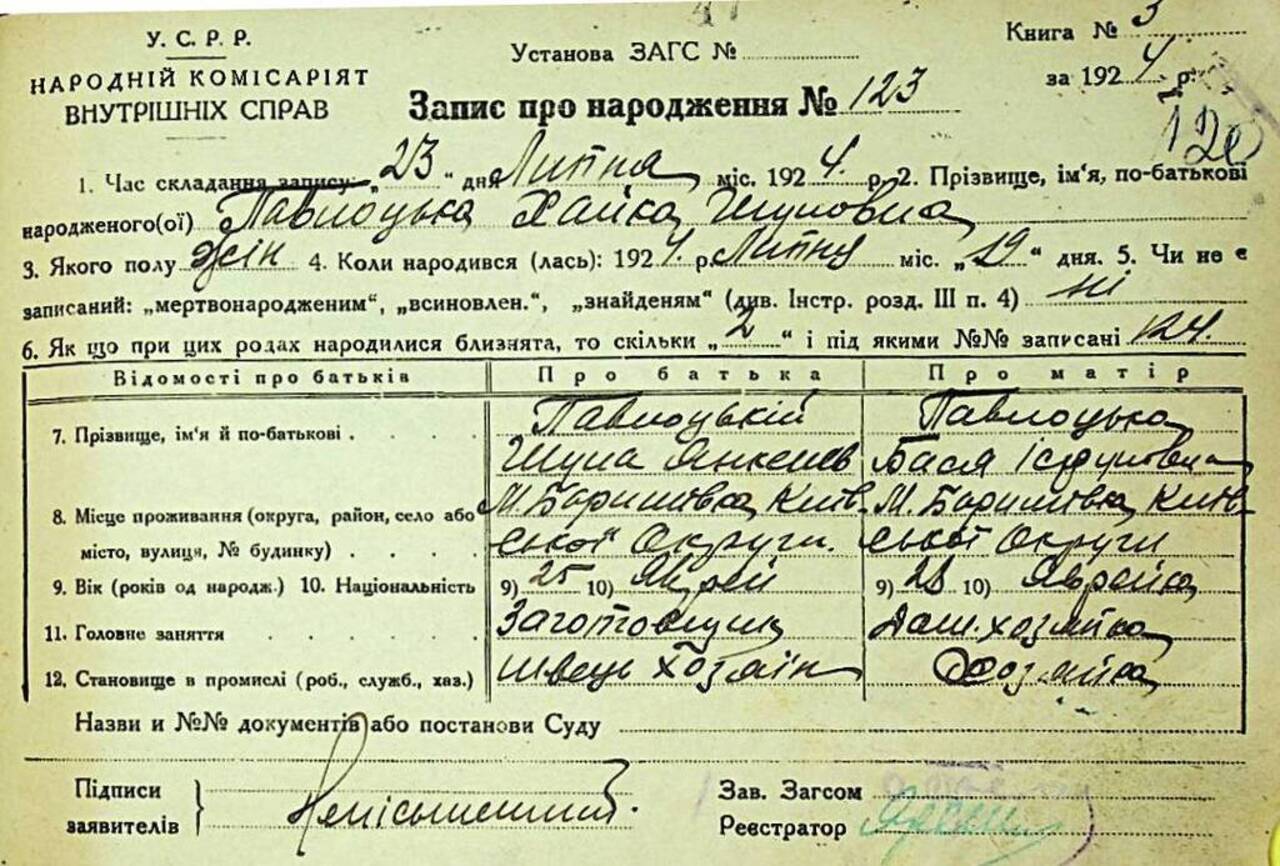 У. С. Р. Р.
НАРОДНІЙ КОМІСАРІЯТ
ВНУТРІШНІХ СПРАВ
Установа ЗАГС №
Книга № 3
за 1924 р.
Запис про народження № 123
120
1. Час складання запису: „23“ дня Липня міс. 1924. р. 2. Прізвище, ім'я, по-батькові
народженого(ої) Павлоцька Хайка Шуловна
3. Якого полу жін 4. Коли народився (лась): 1924. р. Липня міс. „19“ дня. 5. Чи не є
записаний: „мертвонародженим“, „всиновлен.“, „знайденям“ (див. Інстр. розд. III п. 4) ні
6. Як що при цих родах народилися близнята, то скільки „2“ і під якими №№ записані 124.
Відомості про батьків Про батька Про матір
7. Прізвище, ім'я й по-батькові Павлоцькій Павлоцька
Шула Янкелев Бася
8. Місце проживання (округа, район, село або М. Баришівка Київ- М. Баришівка Київ-
місто, вулиця, № будинку) ської Округи. ської Округи
9. Вік (років од народж.) 10. Національність 9) 25 10) Яврей 9) 28 10) Яврейка
11. Головне заняття Заготовщик Дом. хозяйка
12. Становище в промислі (роб., служб., хаз.) швець хозяін Хозяйка
Назви и №№ документів або постанови Суду
Підписи
заявителів
Неписьменний.
Зав. Загсом
Реєстратор